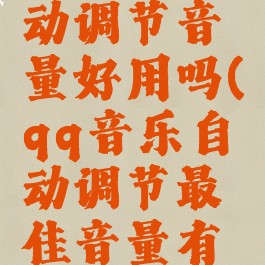 动调节音
量好用吗(
qq音乐自
动调节最
佳音量有